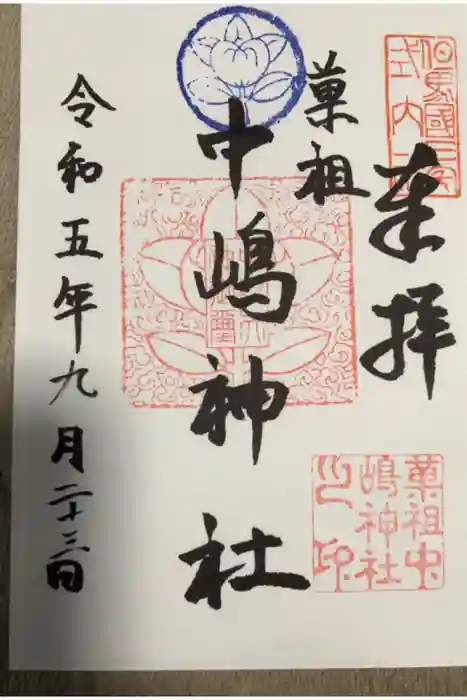 但馬國三宅
式内
奉拝
菓祖中
嶋神社
之印
菓祖
中嶋神社
令和五年九月二十三日